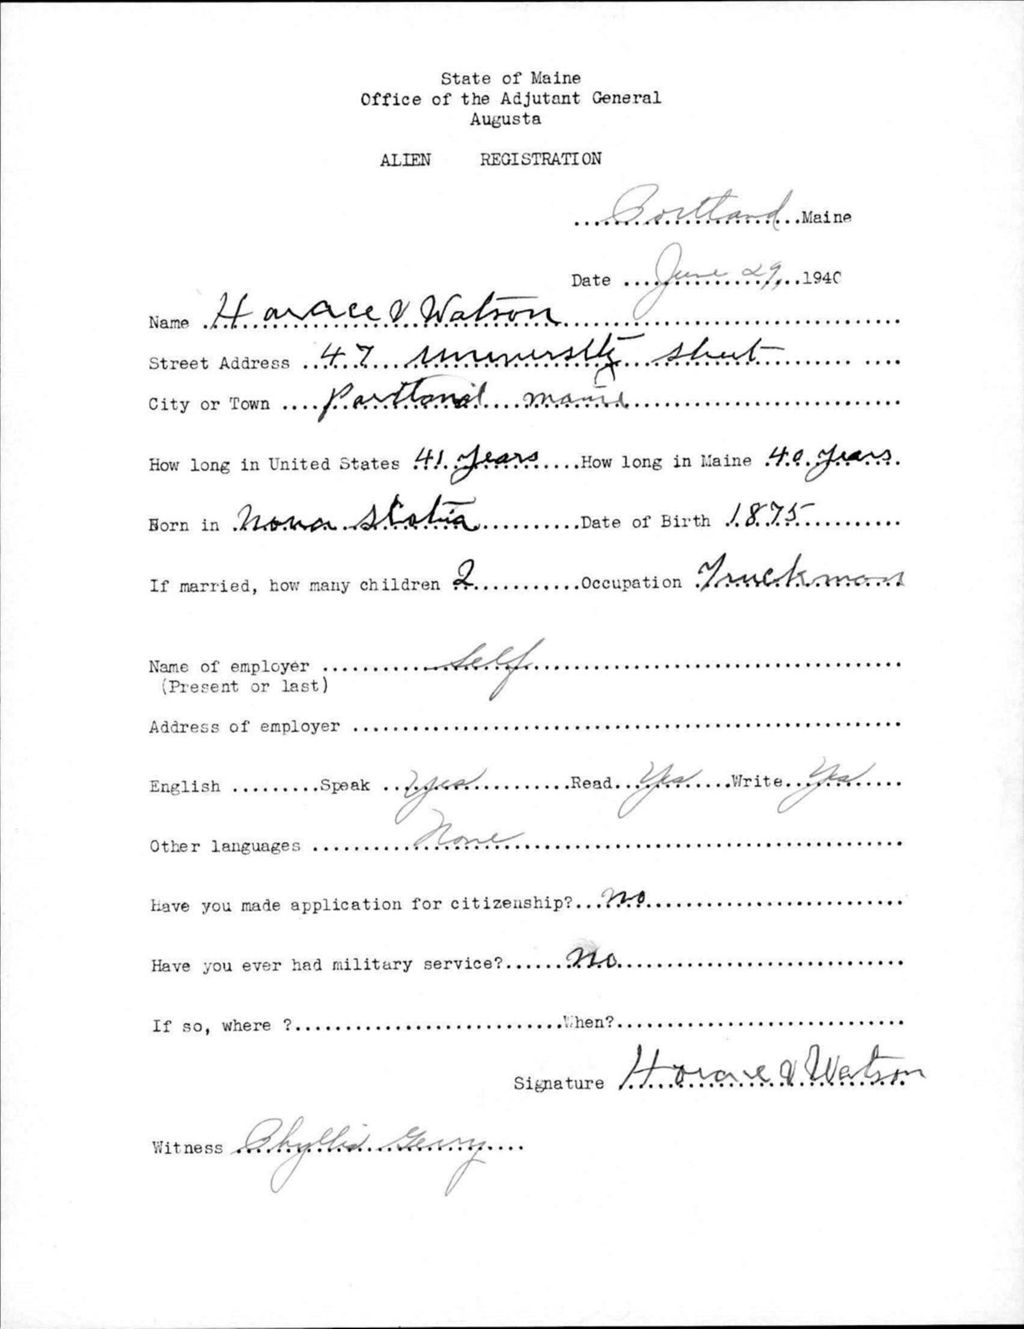 State of Maine
Office of the Adjutant General
Augusta
ALIEN REGISTRATION
Portland Maine
Date June 29, 1940
Name Horace V Watson
Street Address 47 University Street
City or Town Portland Maine
How long in United States 41 years How long in Maine 40 years
Born in Nova Scotia Date of Birth 1875
If married, how many children 2 Occupation Truckman
Name of employer Self
(Present or last)
Address of employer
English Speak Yes Read Yes Write Yes
Other languages None
Have you made application for citizenship? No
Have you ever had military service? No
If so, where ? When?
Signature Horace V Watson
Witness Phyllis Gerry